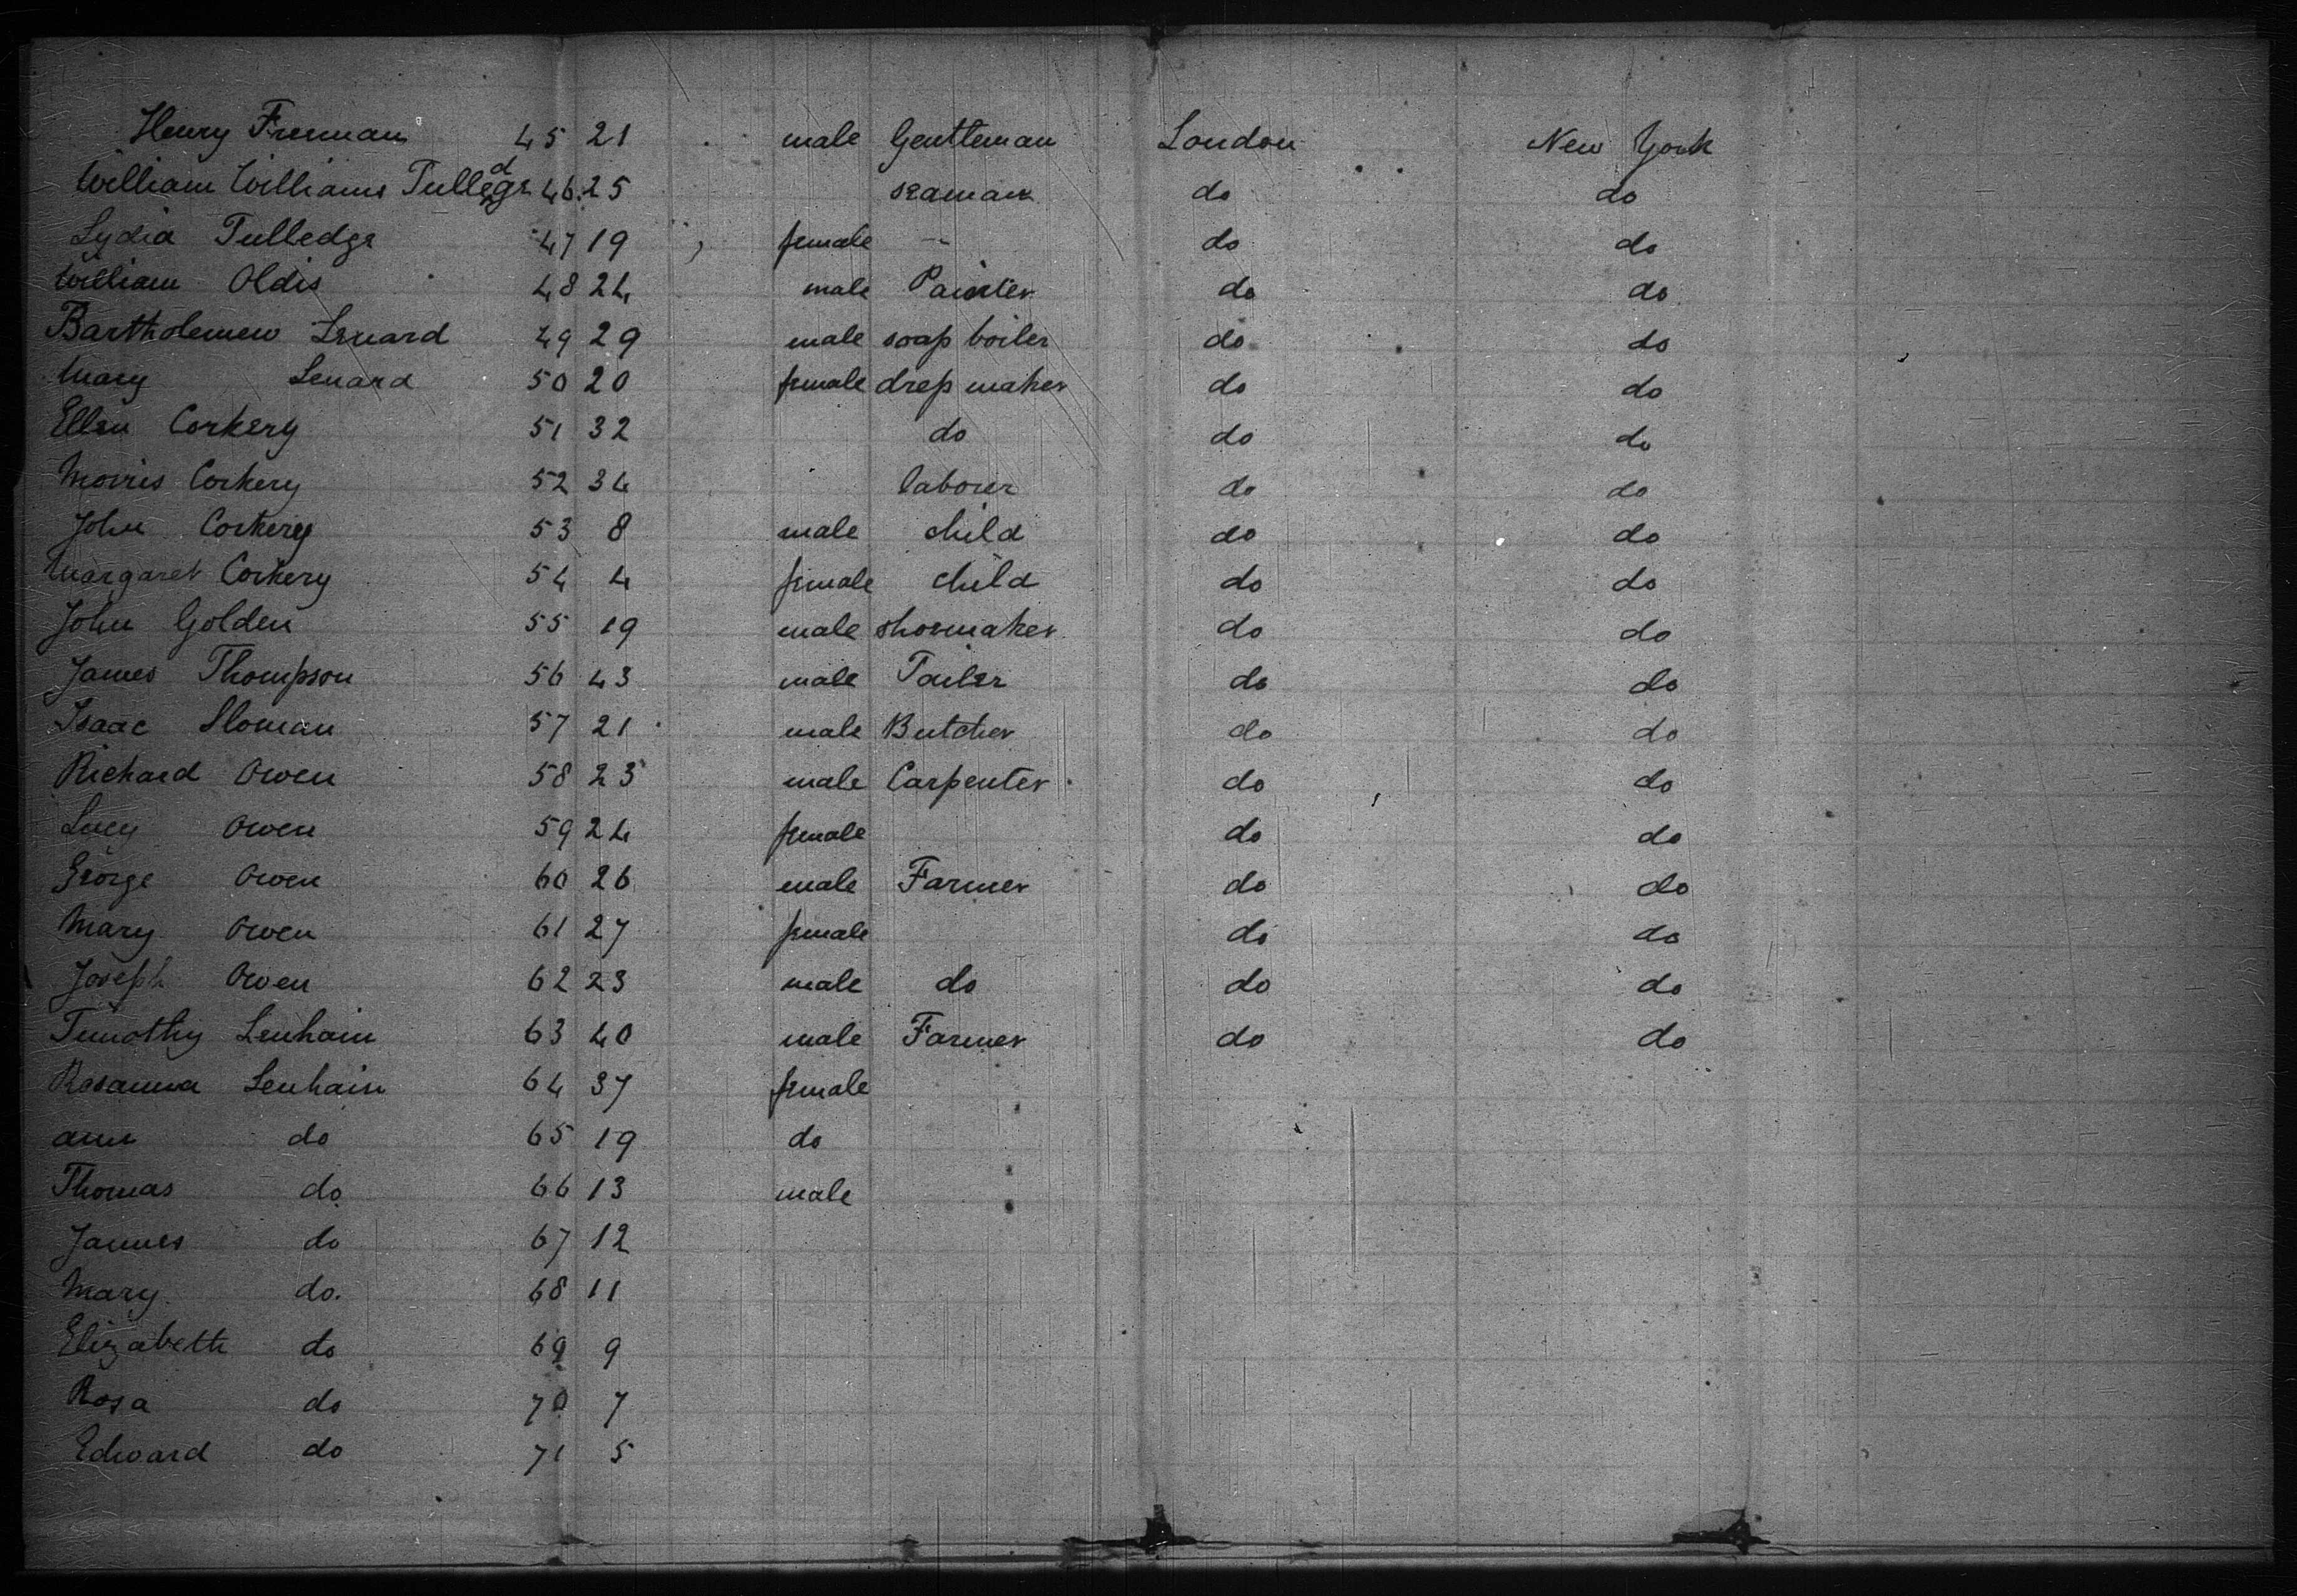 Henry Freeman 45 21 male Gentleman London New York
William Williams Tulledge 46 25 seaman do do
Lydia Tulledge 47 19 female do do
William Oldis 48 24 male Painter do do
Bartholemew Lenard 49 29 male soap boiler do do
Mary Lenard 50 20 female dress maker do do
Ellen Corkery 51 32 do do do
Morris Corkery 52 34 laborer do do
John Corkery 53 8 male child do do
Margaret Corkery 54 4 female child do do
John Golden 55 19 male shoemaker do do
James Thompson 56 43 male Tailer do do
Isaac Sloman 57 21 male Butcher do do
Richard Owen 58 23 male Carpenter do do
Lucy Owen 59 24 female do do
George Owen 60 26 male Farmer do do
Mary Owen 61 27 female do do
Joseph Owen 62 23 male do do do
Timothy Lenhain 63 40 male Farmer do do
Rosanna Lenhain 64 37 female
ann do 65 19 do
Thomas do 66 13 male
James do 67 12
Mary do. 68 11
Elizabeth do 69 9
Rosa do 70 7
Edward do 71 5